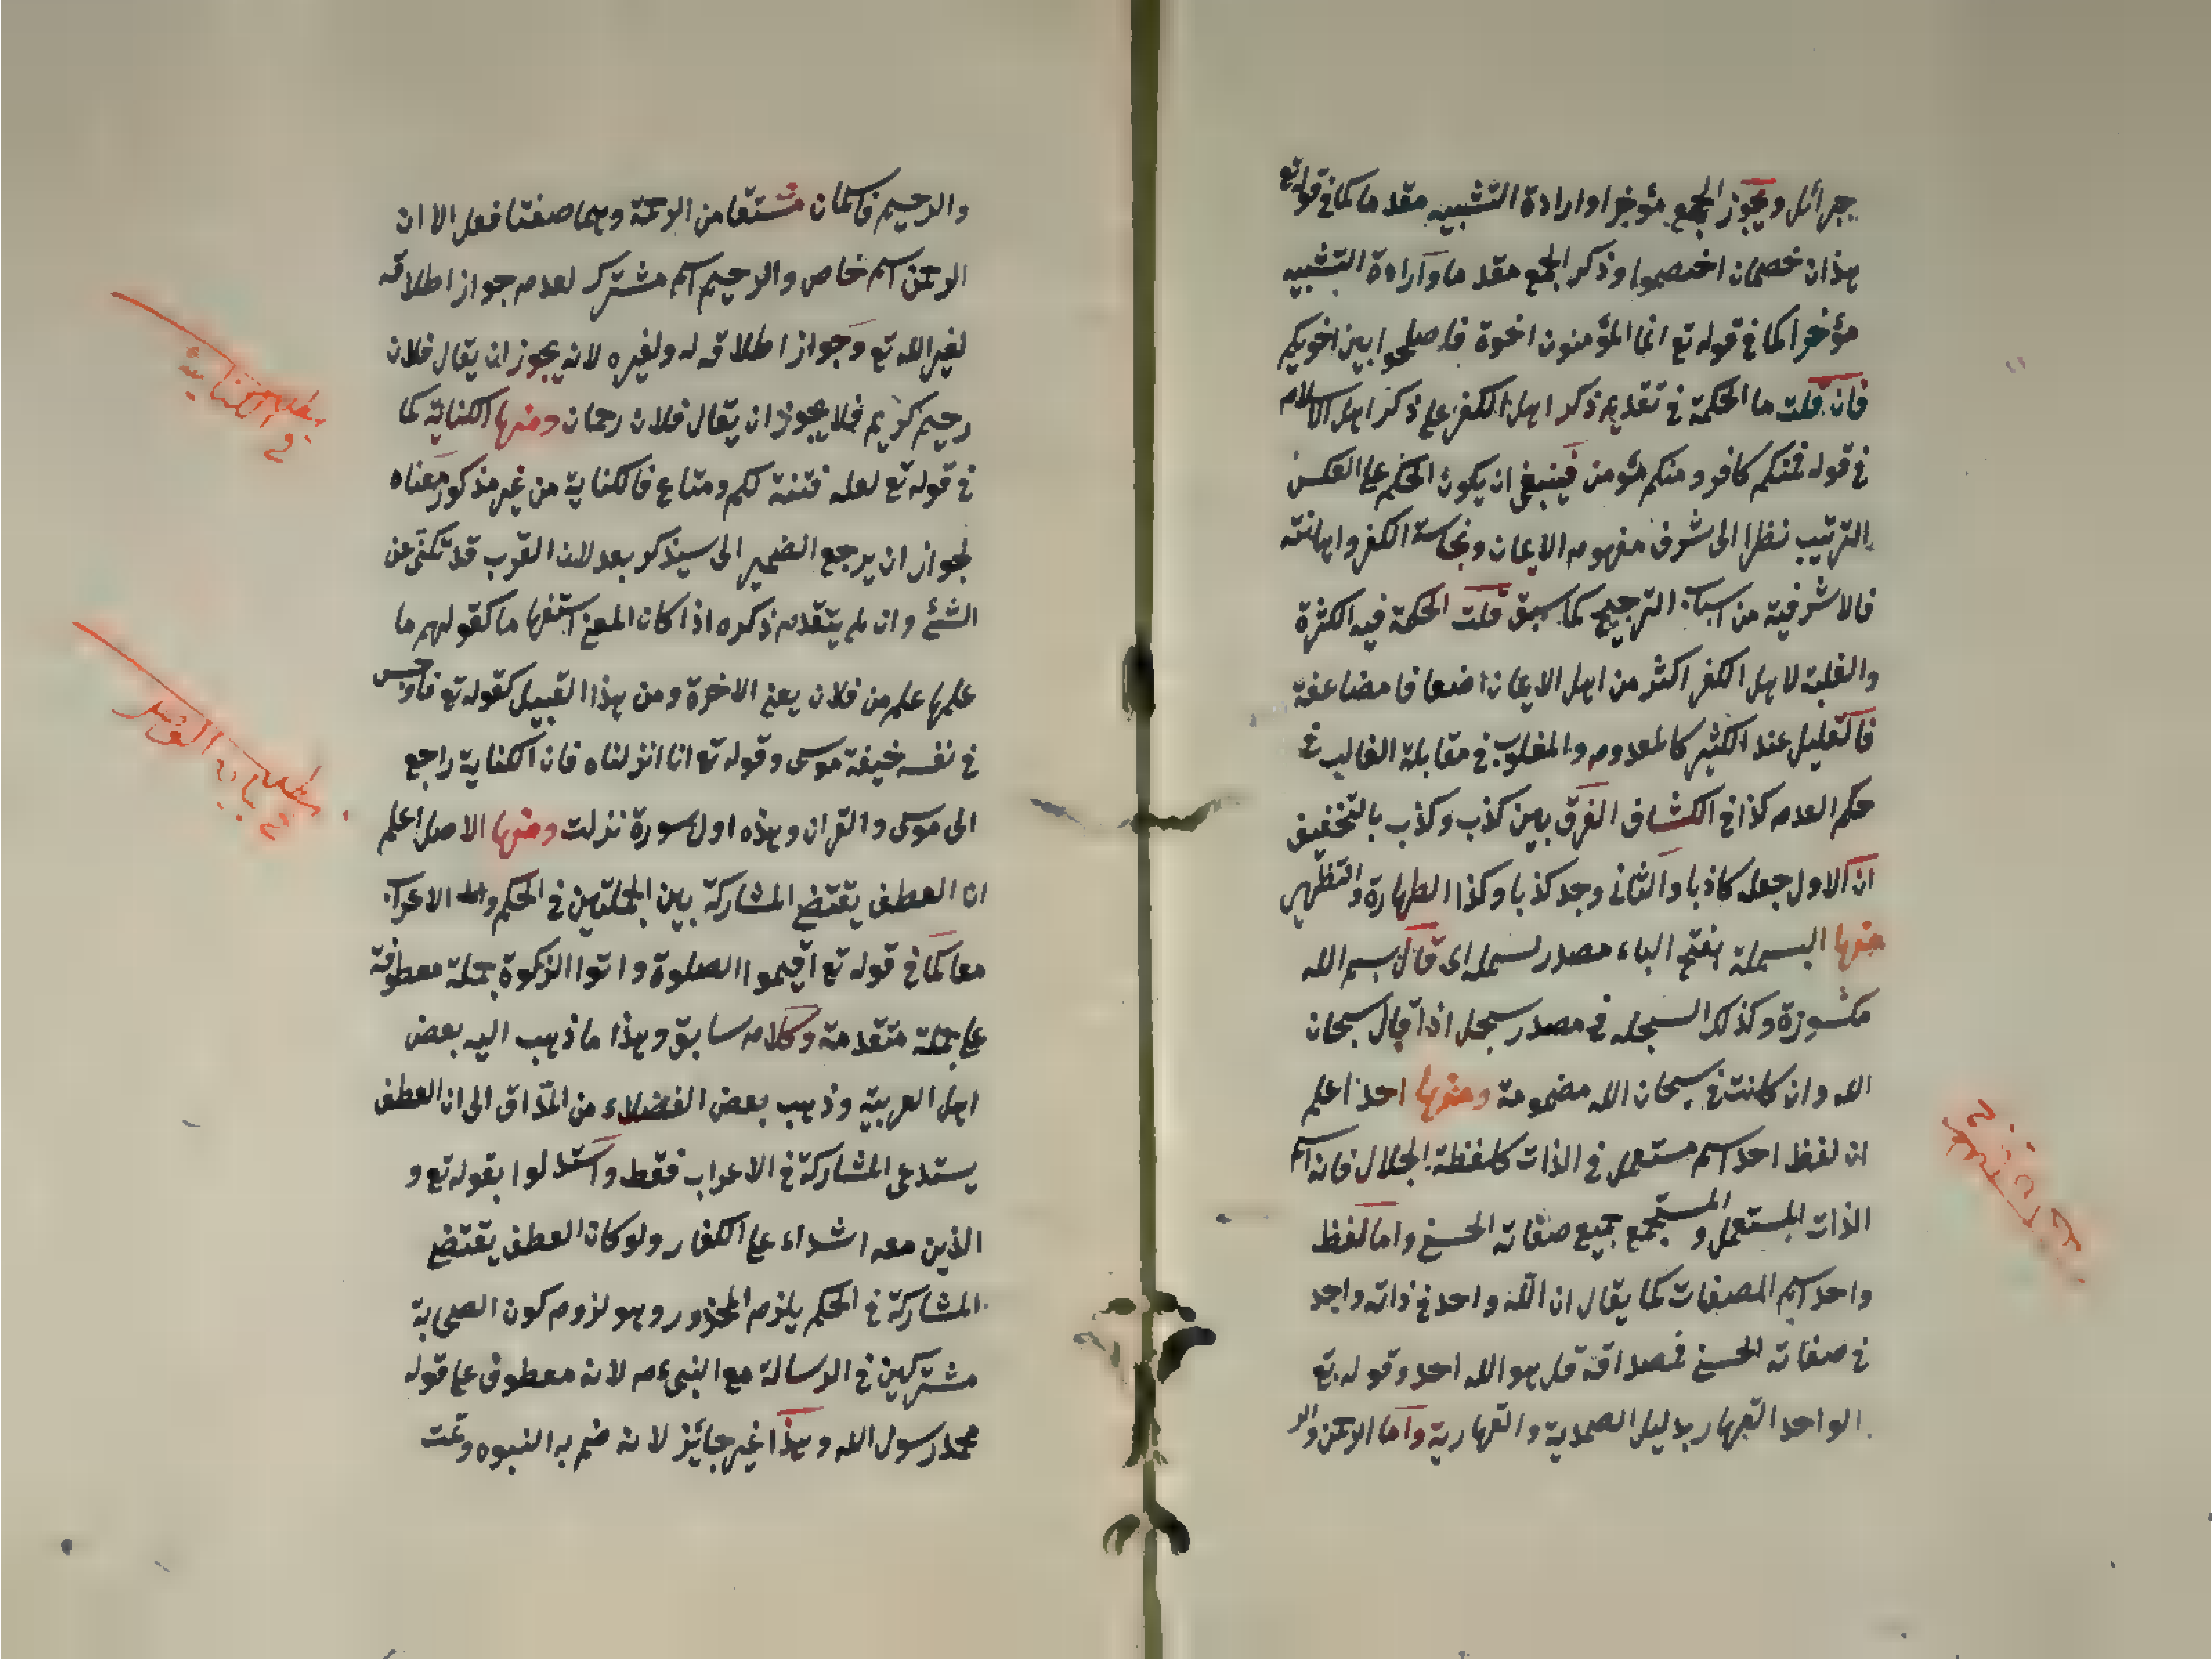 جبرائل ويجوز الجمع مؤخرا وارادة التشبيه مقدما كما في قوله تع
هذان خصمان اختصموا وذكر الجمع مقدما وارادة التشبيه
مؤخرا كما في قوله تع انما المؤمنون اخوة فاصلحوا بين اخويكم
فان قلت ما الحكمة في تقديم ذكر اهل الكفر على ذكر اهل الاسلام
في قوله فمنكم كافر ومنكم مؤمن فينبغي ان يكون الحكم على العكس
الترتيب نظرا الى شرف مفهوم الايمان ونجاسة الكفر واهانته
فالاشرفية من اسباب الترجيح كما سبق قلت الحكمة فيه الكثرة
والغلبة لاهل الكفر اكثر من اهل الايمان اضعافا مضاعفة
فالقليل عند الكثير كالمعدوم والمغلوب في مقابلة الغالب في
حكم العدم كذا في الكشاف الفرق بين كذب وكذب بالتخفيف
ان الاول جعله كاذبا والثاني وجد كذبا وكذا الطهارة والتطهير
منها البسملة بفتح الباء مصدر بسمله اى قال بسم الله
مكسورة وكذلك السبحله في مصدر سبحل اذا قال سبحان
الله وان كانت في سبحان الله مضمومة ومنها احد اعلم
ان لفظ احد اسم مستعمل في الذات كلفظة الجلال فانه اسم
الذات المستعمل والمستجمع بجميع صفاته الحسنى واما لفظ
واحد اسم الصفات كما يقال ان الله واحد في ذاته واحد
في صفاته الحسنى فمصداقه قل هو الله احد وقوله تع
الواحد القهار بدليل الصمدية والقهارية واما الرحمن والر
والرحيم فاسمان مشتقا من الرحمة وهما صفتا فعل الا ان
الرحمن اسم خاص والرحيم اسم مشترك لعدم جواز اطلاقه
لغير الله تع وجواز اطلاقه له ولغيره لانه يجوز ان يقال فلان
رحيم كريم فلا يجوز ان يقال فلان رحمان ومنها الكناية كما
في قوله تع لعله فتنة لكم ومتاع فالكناية من غير مذكور معناه
لجواز ان يرجع الضمير الى سيذكر بعد لان القرب قد تكنى عن
الشئ وان لم يتقدم ذكره اذا كان المعنى استفهاما كقولهم ما
عليها علم من فلان يعنى الاخرة ومن هذا القبيل كقوله تع فاوجس
في نفسه خيفة موسى وقوله تع انا انزلناه فان الكناية راجع
الى موسى والقران وهذه اول سورة نزلت ومنها الاصل اعلم
ان العطف يقتضي المشاركة بين الجملتين في الحكم والاعراب
معا كما في قوله تع اقيموا الصلوة واتوا الزكوة جملة معطوفة
على جملة متقدمة وكلام سابق وهذا ما ذهب اليه بعض
اهل العربية وذهب بعض الفضلاء من المذاق الى ان العطف
يستدعى المشاركة في الاعراب فقط واستدلوا بقوله تع و
الذين معه اشداء على الكفار ولو كان العطف يقتضي
المشاركة في الحكم يلزم المحذور وهو لزوم كون الصحابة
مشتركين في الرسالة مع النبى عم لانه معطوف على قوله
محمد رسول الله وهذا غير جائز لانه ختم به النبوه وتمت
مطلب
في الكناية
مطلب
في بيان